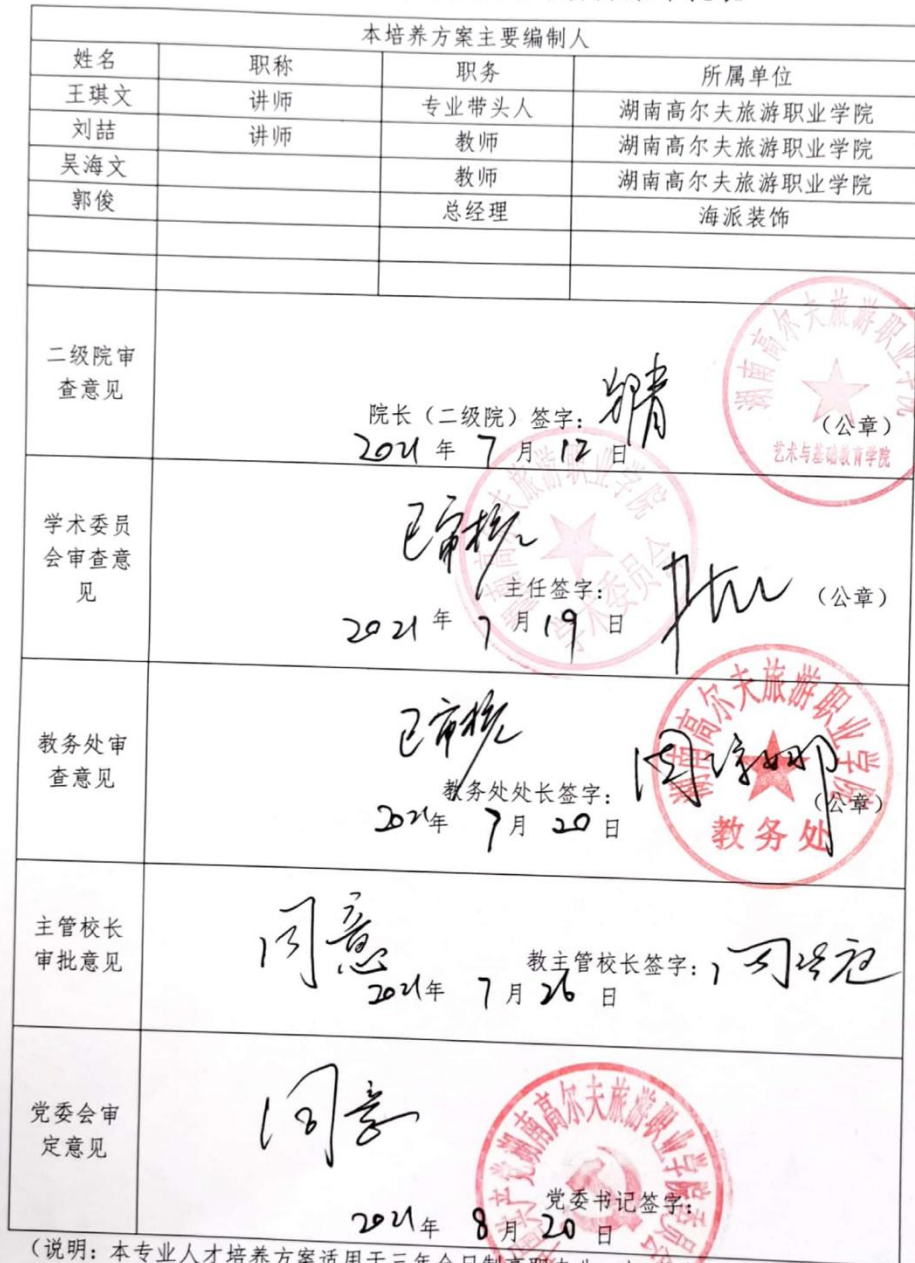 本培养方案主要编制人
姓名 职称 职务 所属单位
王琪文 讲师 专业带头人 湖南高尔夫旅游职业学院
刘喆 讲师 教师 湖南高尔夫旅游职业学院
吴海文 教师 湖南高尔夫旅游职业学院
郭俊 总经理 海派装饰
二级院审
查意见
院长（二级院）签字：
（公章）
2021 年 7 月 12 日
湖南高尔夫旅游职业学院
艺术与基础教育学院
学术委员
会审查意
见
已审核
主任签字：
（公章）
2021 年 7 月 19 日
湖南高尔夫旅游职业学院
学术委员会
教务处审
查意见
已审核
教务处处长签字：
（公章）
2021年 7 月 20 日
湖南高尔夫旅游职业学院
教务处
主管校长
审批意见
同意
教主管校长签字：
2021年 7 月 26 日
党委会审
定意见
同意
党委书记签字：
2021年 8 月 20 日
产党湖南高尔夫旅游职业学院
（说明：本专业人才培养方案适用于三年全日制高职